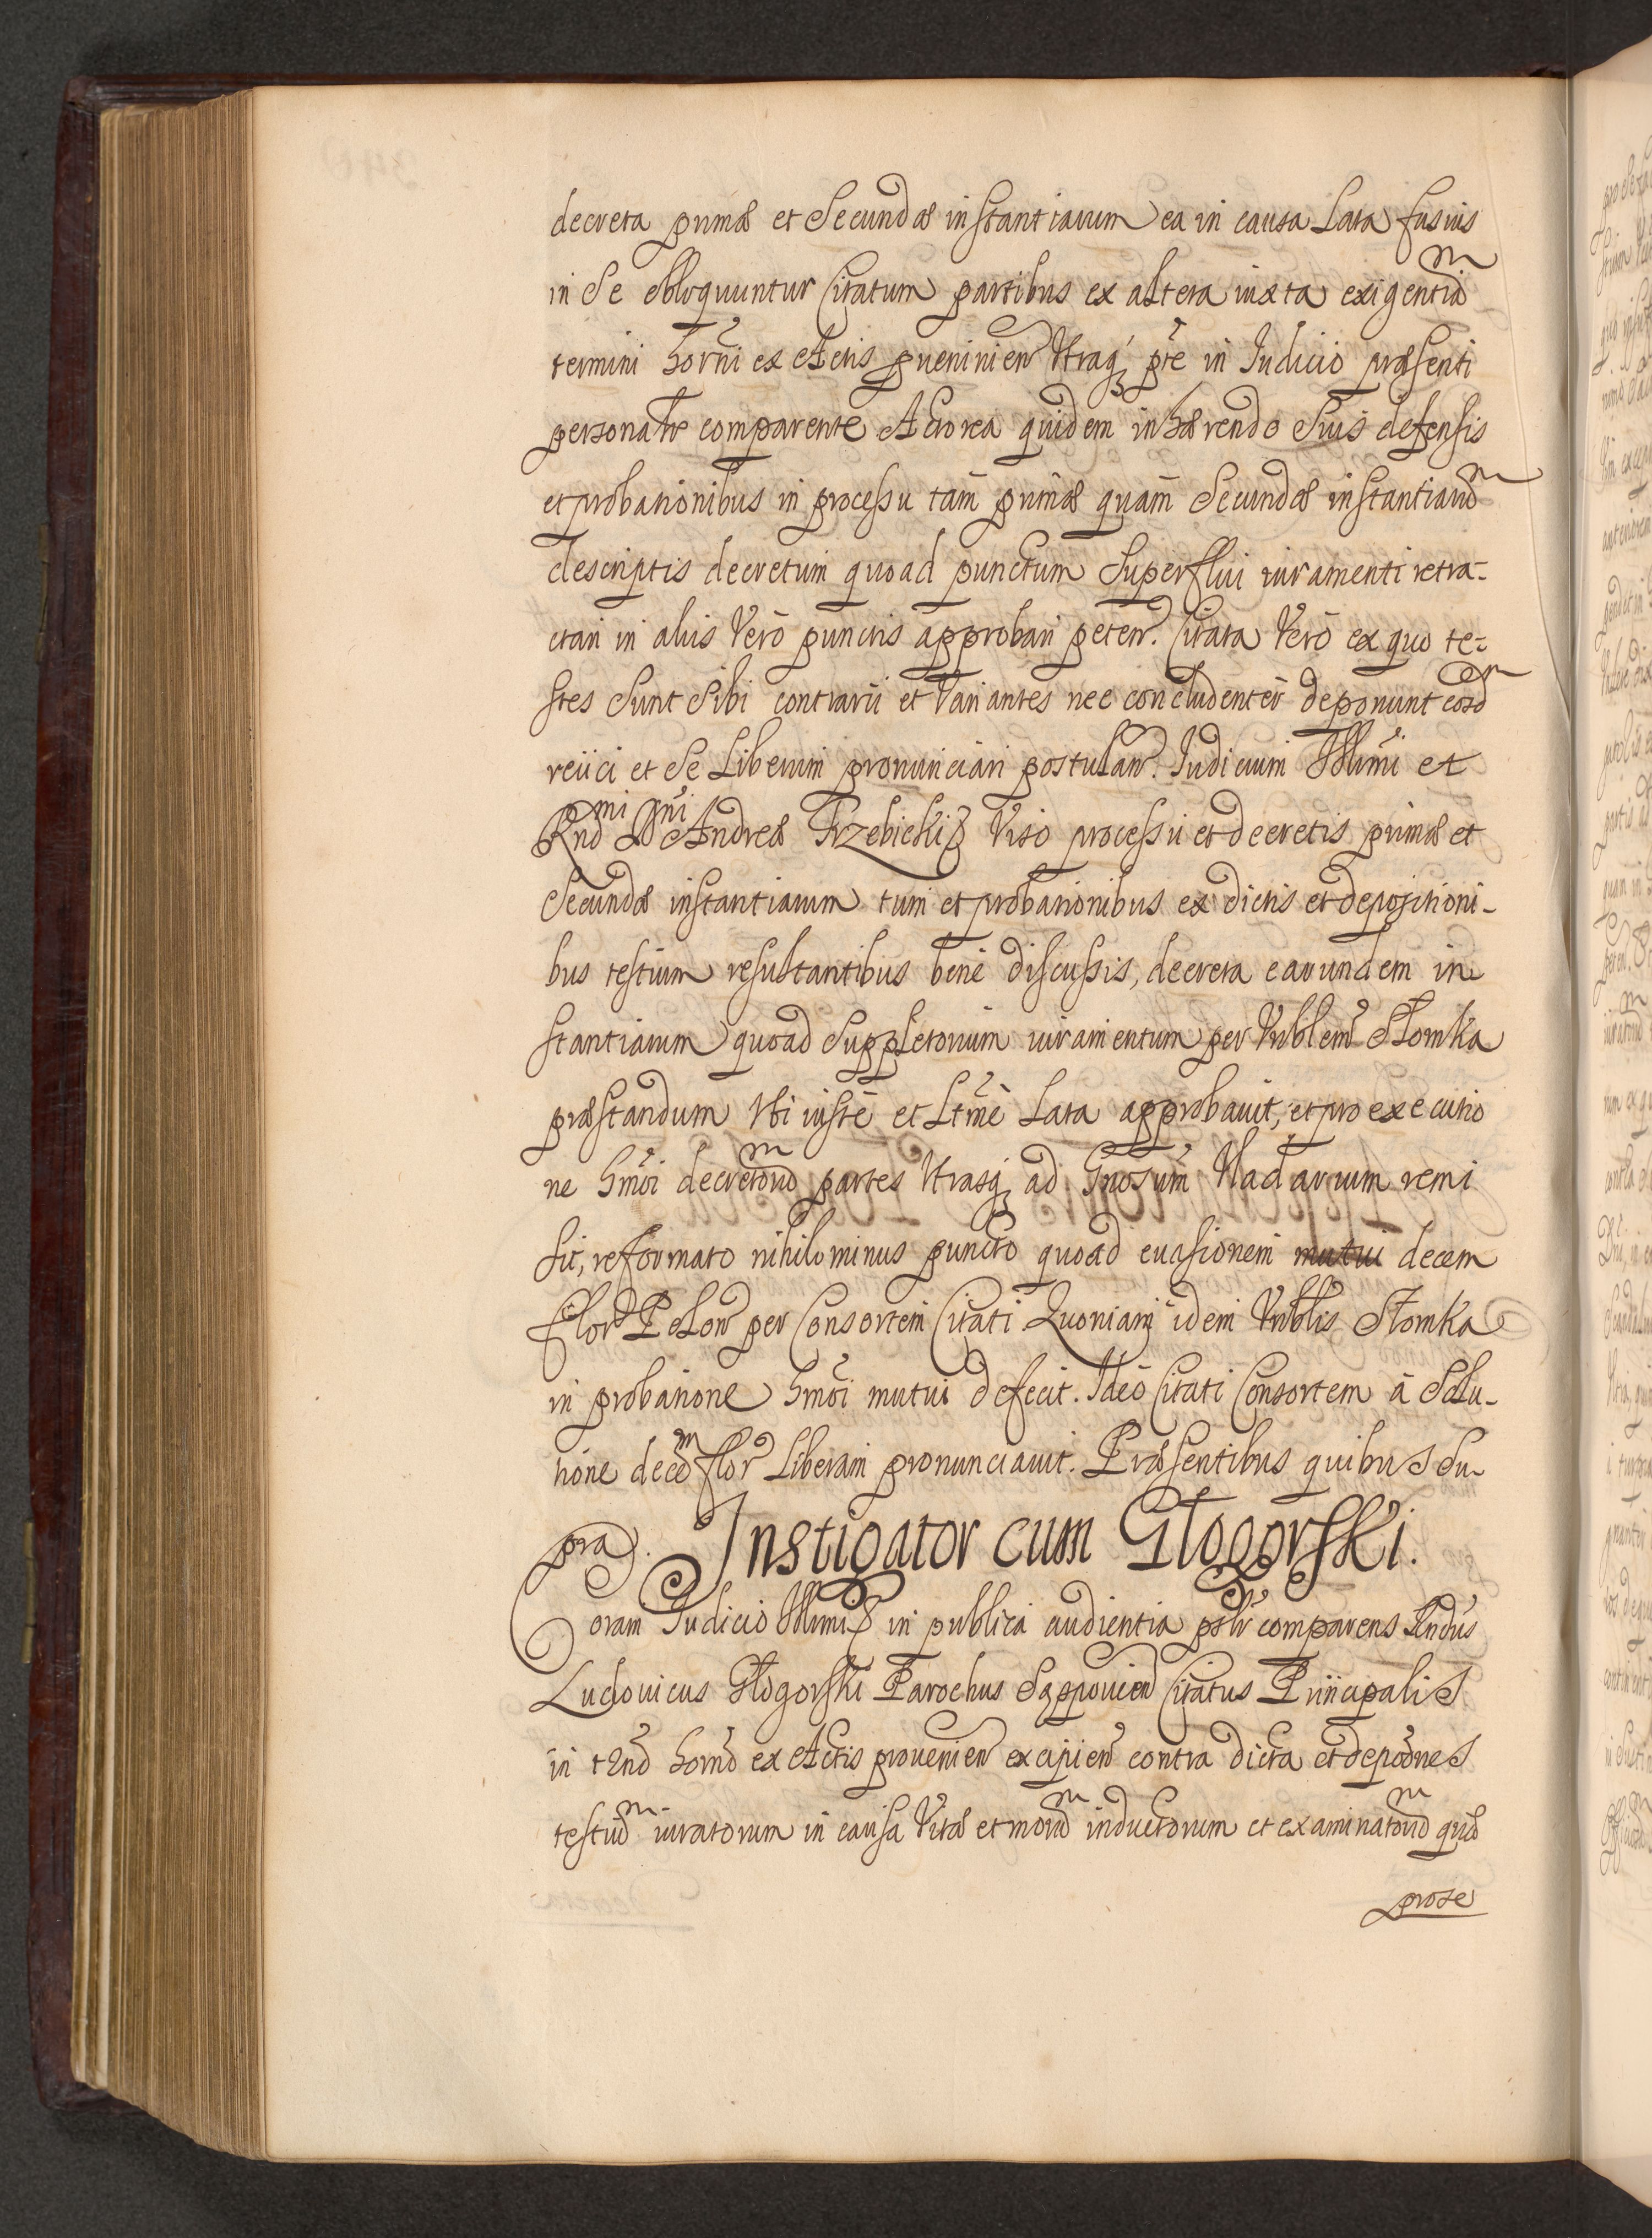 decreta primæ et Secundæ instantiarum ea in causa Lata fusius
in Se obloquuntur Citatum partibus ex altera iuxta exigentiam
termini horni ex Actis puenien Utraq pte in Iudicio præsenti
personalr comparente Actorea quidem inhærendo Suis defensis
et probationibus in processu tam primæ quam Secundæ instantiarum
descriptis decretum quoad punctum Superflui iuramenti retra-
ctari in aliis Vero punctis approbari peten. Citata Vero ex quo te-
stes Sunt Sibi contrarii et Variantes nec concludenter deponunt eosdem
reiici et Se Liberum pronunciari postulan. Iudicium Illmi et
Rndmi Dni Andreæ Trzebicki Viso processu et decretis primæ et
Secundæ instantiarum tum et probationibus ex dictis et depositioni-
bus testium resultantibus bene discussis, decreta earundem in
stantiarum quoad Suppletorium iuramentum per Nblem Słomka
præstandum Uti iuste et Ltme Lata approbavit, et pro executio
ne hmoi decretorum partes Utrasq ad Gnosum Vladarium remi
sit, reformato nihilominus puncto quoad euasionem mutui decem
flor Polon per Consortem Citati Quoniam idem Nblis Słomka
in probatione hmoi mutui defecit. Ideo Citati Consortem a Solu-
tione decem flor Liberam pronunciavit. Præsentibus quibus Su-
pra.
Instigator cum Głogorski.
Coram Iudicio Illmi in publica audientia pslr comparens Rndus
Ludovicus Głogorski Parochus Sappovien Citatus Principalis
in tno horno ex Actis provenien excipien contra dicta et depoones
testium iuratorum in causa Vitæ et morum inductorum et examinatorum quæ
prose